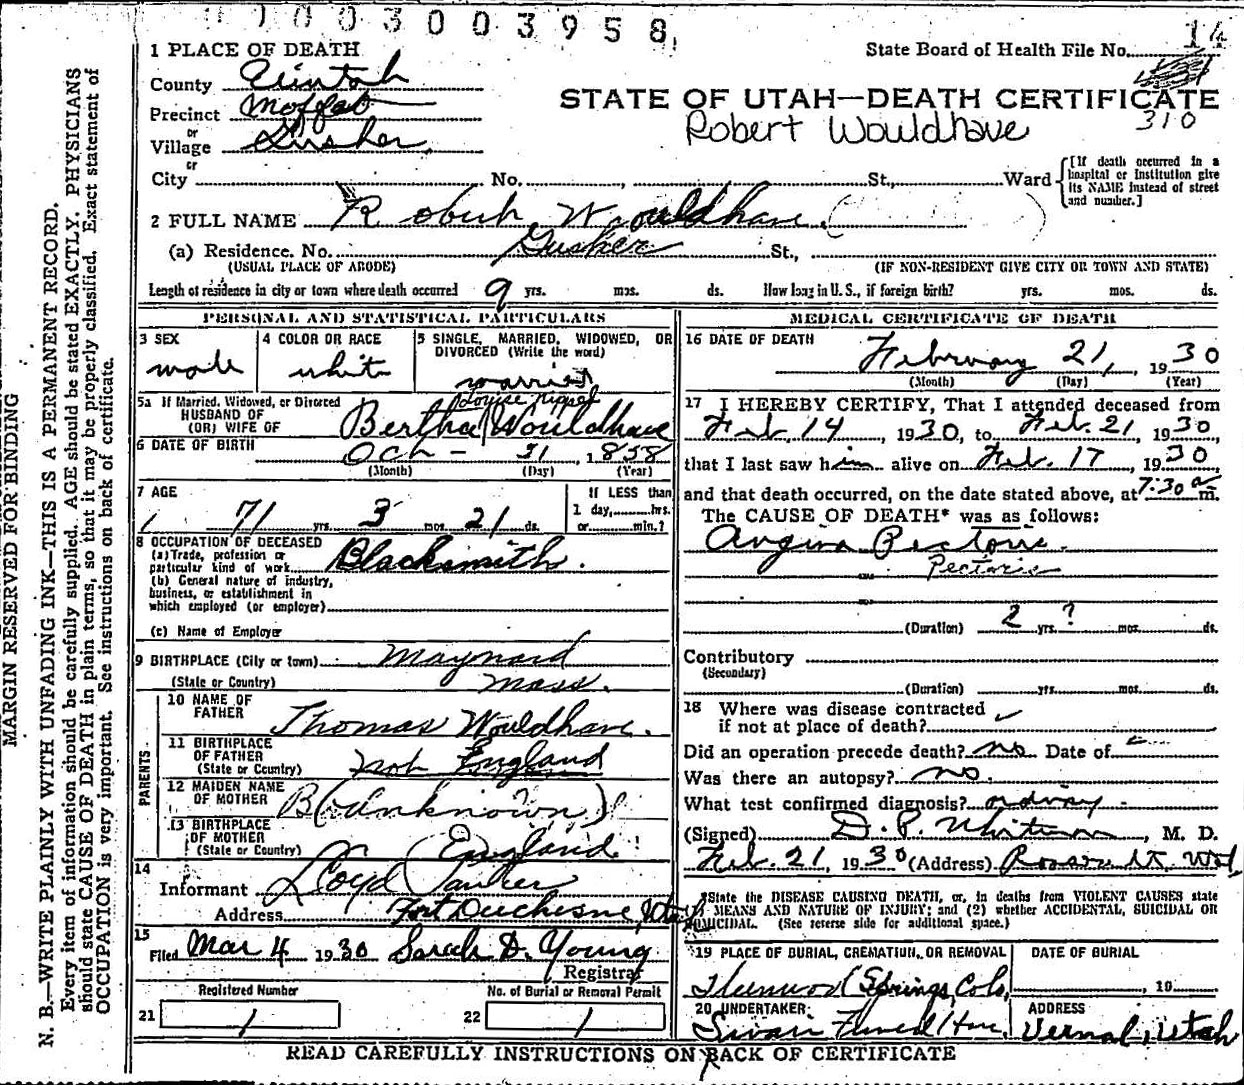 0003003958
1 PLACE OF DEATH
State Board of Health File No. 14
County Uintah
Precinct Moffat
310
or
Village Gusher
STATE OF UTAH—DEATH CERTIFICATE
Robert Wouldhave
or
City No. St., Ward
[If death occurred in a hospital or institution give its NAME instead of street and number.]
2 FULL NAME Robert Wouldhave
(a) Residence. No. Gusher St.,
(USUAL PLACE OF ABODE) (IF NON-RESIDENT GIVE CITY OR TOWN AND STATE)
Length of residence in city or town where death occurred 9 yrs. mos. ds. How long in U.S., if foreign birth? yrs. mos. ds.
PERSONAL AND STATISTICAL PARTICULARS
3 SEX
male
4 COLOR OR RACE
white
5 SINGLE, MARRIED, WIDOWED, OR DIVORCED (Write the word)
married
5a If Married, Widowed, or Divorced
HUSBAND OF
(OR) WIFE OF
Louise
Bertha Wouldhave
6 DATE OF BIRTH Oct - 31, 1858
(Month) (Day) (Year)
7 AGE
71 yrs. 3 mos. 21 ds.
If LESS than
1 day, hrs.
or min.?
8 OCCUPATION OF DECEASED
(a) Trade, profession or
particular kind of work Blacksmith.
(b) General nature of industry,
business, or establishment in
which employed (or employer)
(c) Name of Employer
9 BIRTHPLACE (City or town) Maynard
(State or Country) Mass.
PARENTS
10 NAME OF
FATHER Thomas Wouldhave.
11 BIRTHPLACE
OF FATHER
(State or Country) England
12 MAIDEN NAME
OF MOTHER B (Unknown)
13 BIRTHPLACE
OF MOTHER
(State or Country) (England)
14
Informant Lloyd
Address Fort Duchesne, Utah
15
Filed Mar 4 1930 Sarah D. Young
Registrar
Registered Number
21 1
No. of Burial or Removal Permit
22 1
MEDICAL CERTIFICATE OF DEATH
16 DATE OF DEATH
February 21, 1930
(Month) (Day) (Year)
17 I HEREBY CERTIFY, That I attended deceased from
Feb. 14, 1930, to Feb. 21, 1930,
that I last saw him alive on Feb. 17, 1930,
and that death occurred, on the date stated above, at 7:30 a m.
The CAUSE OF DEATH* was as follows:
Angina Pectoris.
Pectoris
(Duration) 2 yrs. ? mos. ds.
Contributory
(Secondary)
(Duration) yrs. mos. ds.
18 Where was disease contracted
if not at place of death?
Did an operation precede death? no Date of
Was there an autopsy? no.
What test confirmed diagnosis?
(Signed) D. P. Whitmore, M. D.
Feb. 21 1930 (Address) Roosevelt,
*State the DISEASE CAUSING DEATH, or, in deaths from VIOLENT CAUSES state
MEANS AND NATURE OF INJURY; and (2) whether ACCIDENTAL, SUICIDAL OR
HOMICIDAL. (See reverse side for additional space.)
19 PLACE OF BURIAL, CREMATION, OR REMOVAL
Glenwood Springs, Colo,
DATE OF BURIAL
, 19
20 UNDERTAKER
Swain Funeral Home
ADDRESS
Vernal, Utah
READ CAREFULLY INSTRUCTIONS ON BACK OF CERTIFICATE
MARGIN RESERVED FOR BINDING
N. B.—WRITE PLAINLY WITH UNFADING INK—THIS IS A PERMANENT RECORD.
Every item of information should be carefully supplied. AGE should be stated EXACTLY. PHYSICIANS
should state CAUSE OF DEATH in plain terms, so that it may be properly classified. Exact statement of
OCCUPATION is very important. See instructions on back of certificate.